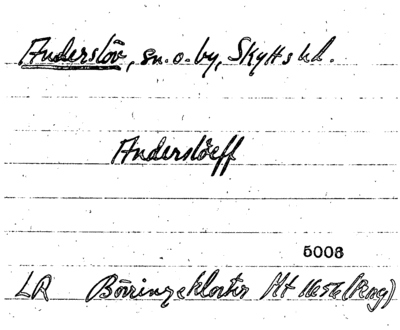 Anderslöv, sn. o. by, Skytts hd.
Anderslöeff
5006
LR Börringekloster Ht 1656 (Rpg)